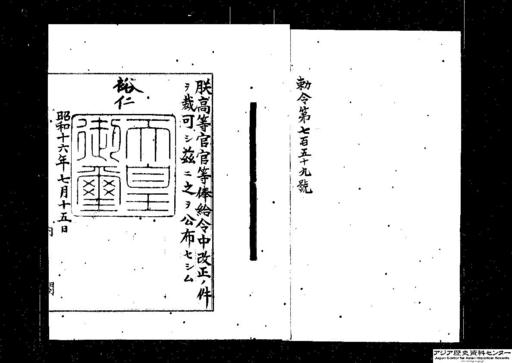 勅令第七百五十九號
朕高等官官等俸給令中改正ノ件
ヲ裁可シ茲ニ之ヲ公布セシム
裕仁
天皇御璽
昭和十六年七月十五日
アジア歴史資料センター
Japan Center for Asian Historical Records